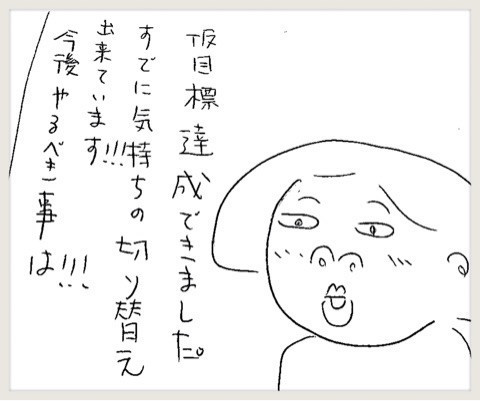 仮目標達成できました。
すでに気持ちの切り替え
出来ています!!!
今後やるべき事は!!!